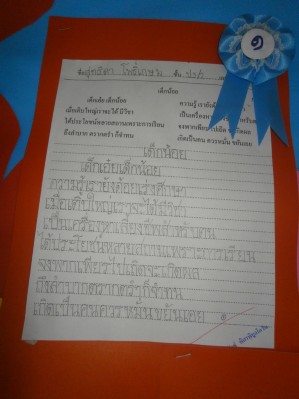 ชื่อ สุทธิดา โพธิ์เกษม ชั้น ป.5/1
๑
เด็กน้อย
เด็กเอ๋ย เด็กน้อย ความรู้ เรายัง
เมื่อเติบใหญ่เราจะ ได้ มีวิชา เป็นเครื่อง
ได้ประโยชน์หลายสถานเพราะการเรียน จงพากเพียร
ถึงลำบาก ตรากตรำ ก็จำทน เกิดเป็นคน ควรหมั่น ขยันเอย
เด็กน้อย
เด็กเอ๋ยเด็กน้อย
ความรู้เรายังด้อยเร่งศึกษา
เมื่อเติบใหญ่เราจะได้มีวิชา
เป็นเครื่องหาเลี้ยงชีพสำหรับตน
ได้ประโยชน์หลายสถานเพราะการเรียน
จงพากเพียรไปเถิดจะเกิดผล
ถึงลำบากตรากตรำก็จำทน
เกิดเป็นคนควรหมั่นขยันเอย